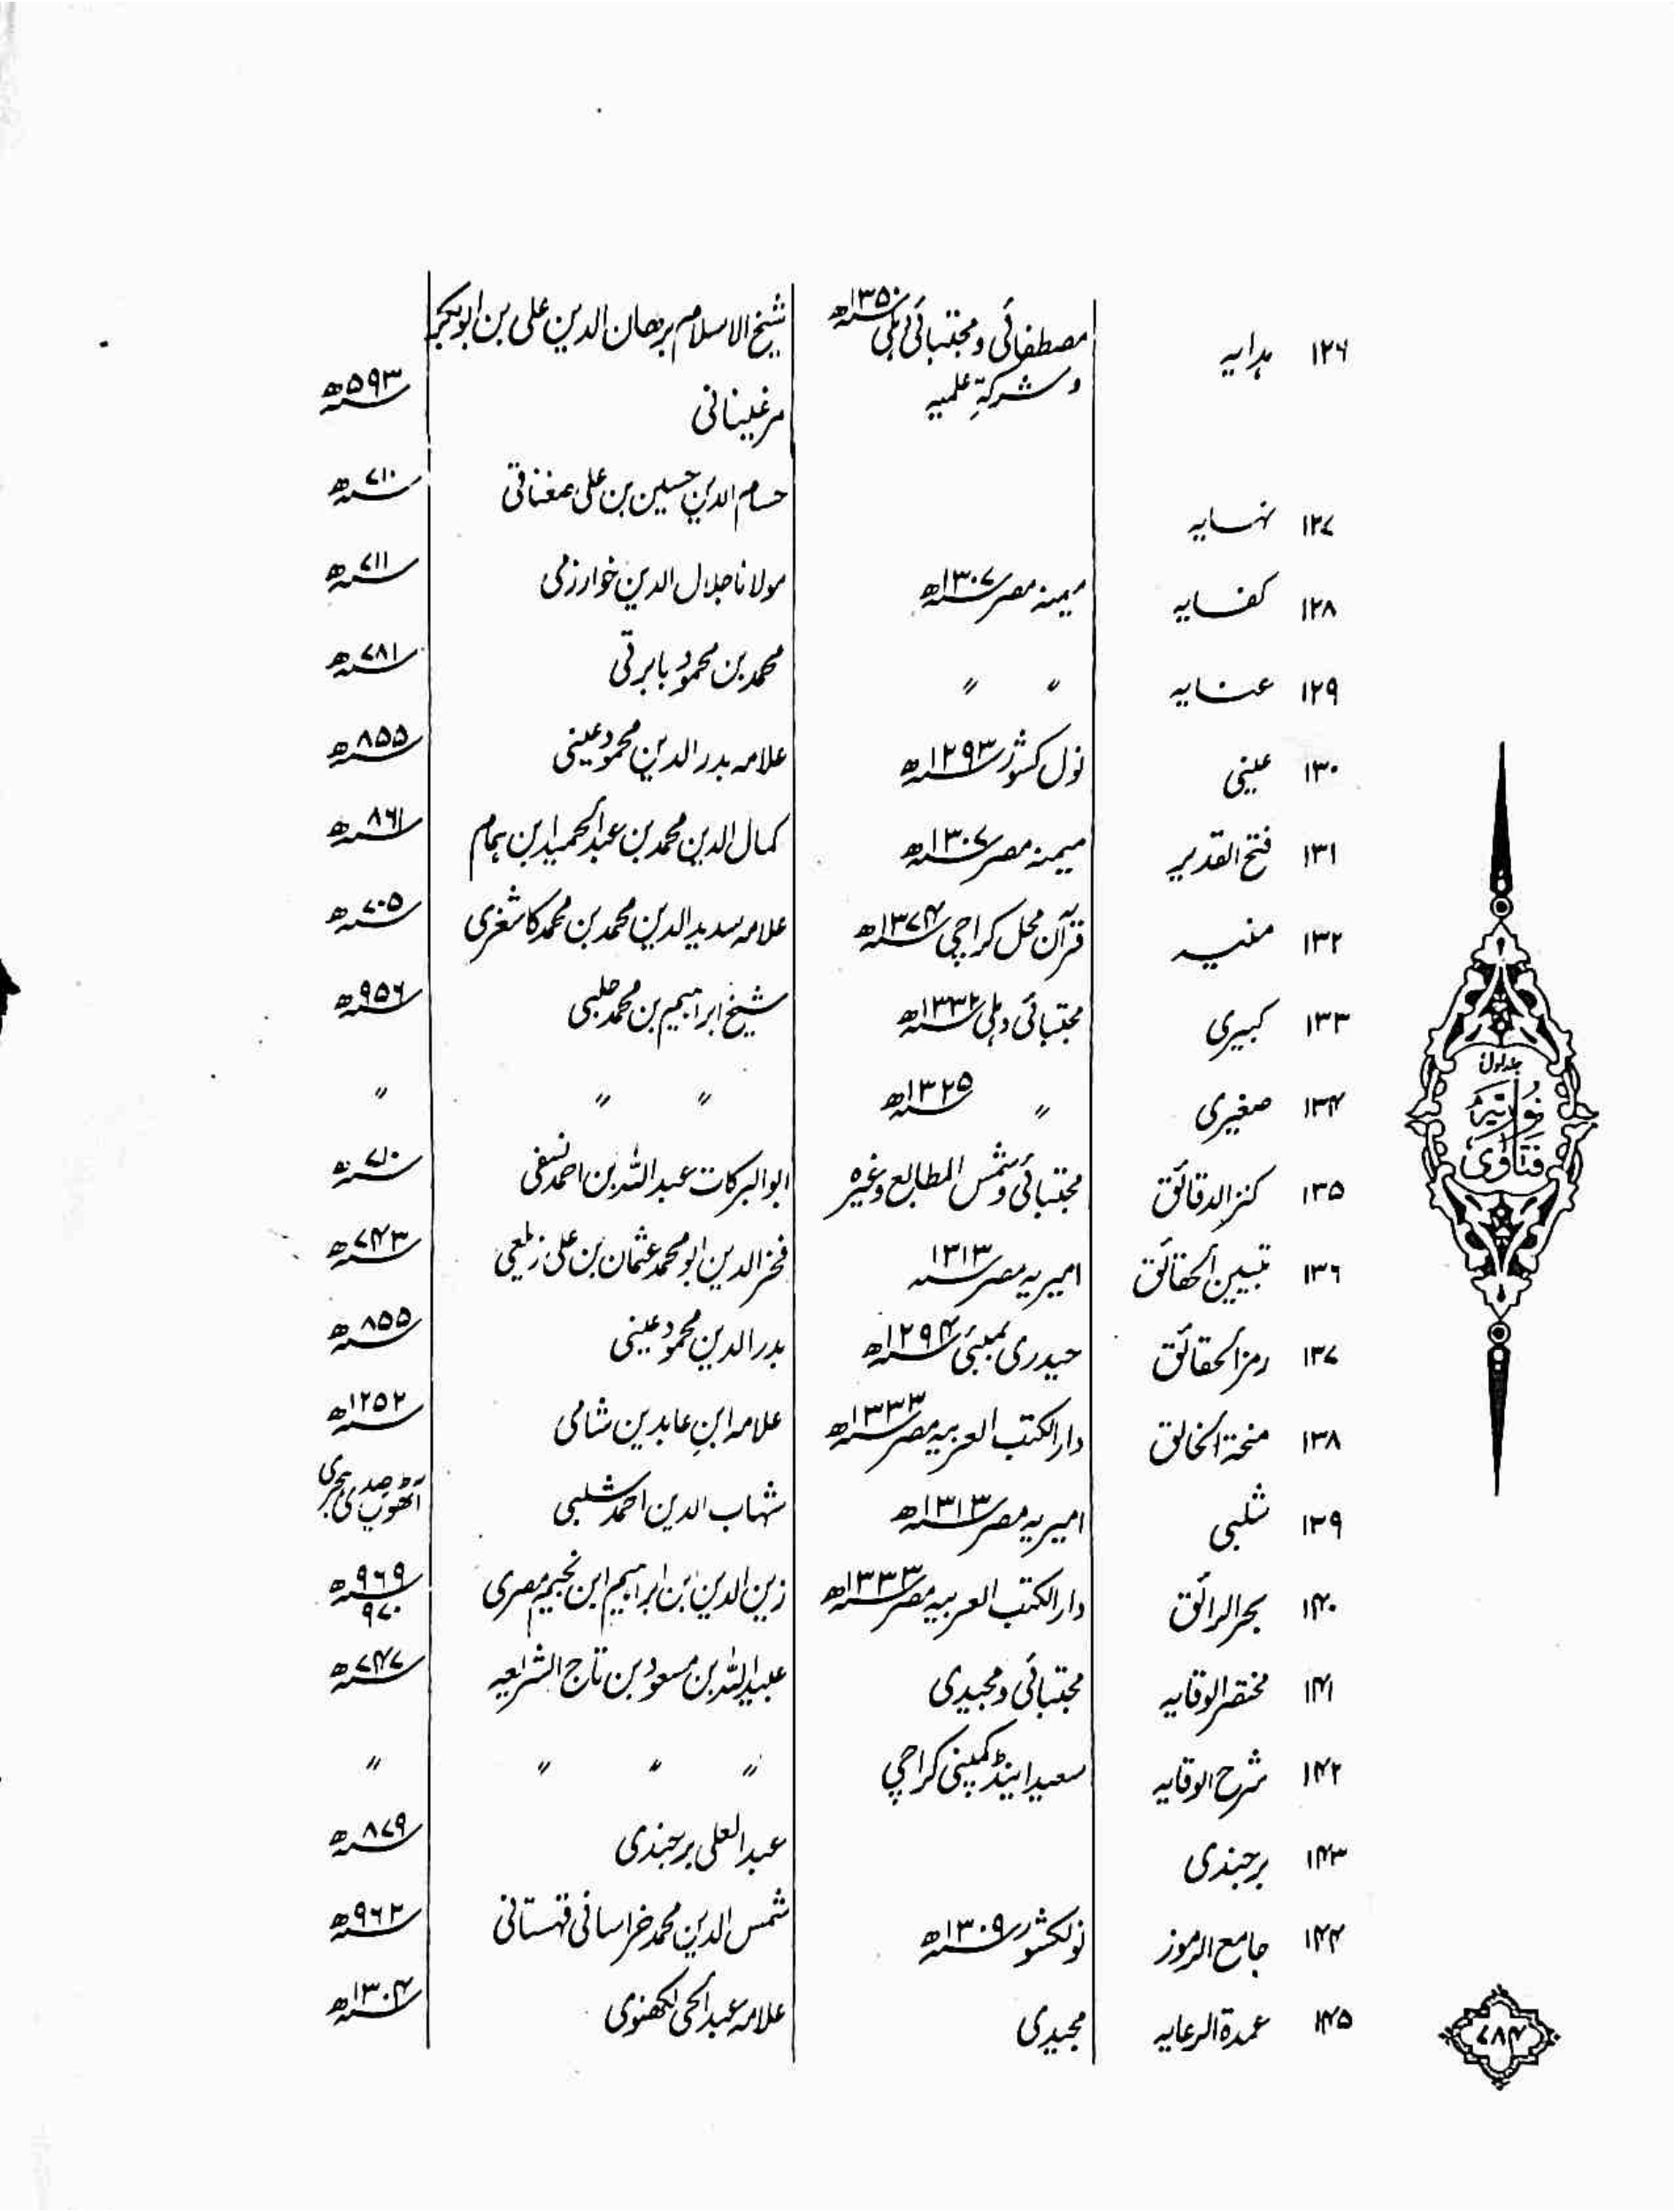 ۱۲۶ ہدایہ مصطفائی ومجتبائی دہلی ۱۳۵۰ھ شیخ الاسلام برھان الدین علی بن ابوبکر
وشرکۃ علمیہ مرغینانی ۵۹۳ھ
۱۲۷ نہایہ حسام الدین حسین بن علی صغناقی ۷۱۰ھ
۱۲۸ کفایہ میمنہ مصر ۱۳۰۷ھ مولانا جلال الدین خوارزمی ۷۱۱ھ
۱۲۹ عنایہ 〃 〃 محمد بن محمود بابرتی ۷۸۱ھ
۱۳۰ عینی نول کشور ۱۲۹۳ھ علامہ بدر الدین محمود عینی ۸۵۵ھ
۱۳۱ فتح القدیر میمنہ مصر ۱۳۰۷ھ کمال الدین محمد بن عبدالحمید ابن ہمام ۸۶۱ھ
۱۳۲ منیہ قرآن محل کراچی ۱۳۷۴ھ علامہ سدید الدین محمد بن محمد کاشغری ۷۰۵ھ
۱۳۳ کبیری مجتبائی دہلی ۱۳۳۲ھ شیخ ابراہیم بن محمد حلبی ۹۵۶ھ
۱۳۴ صغیری 〃 ۱۳۲۵ھ 〃 〃 〃
۱۳۵ کنز الدقائق مجتبائی وشمس المطابع وغیرہ ابو البرکات عبد اللہ بن احمد نسفی ۷۱۰ھ
۱۳۶ تبیین الحقائق امیریہ مصر ۱۳۱۳ فخر الدین ابو محمد عثمان بن علی زیلعی ۷۴۳ھ
۱۳۷ رمز الحقائق حیدری بمبئی ۱۲۹۴ھ بدر الدین محمود عینی ۸۵۵ھ
۱۳۸ منحۃ الخالق دار الکتب العربیہ مصر ۱۳۳۳ھ علامہ ابنِ عابدین شامی ۱۲۵۲ھ
۱۳۹ شلبی امیریہ مصر ۱۳۱۳ھ شہاب الدین احمد شلبی آٹھویں صدی ہجری
۱۴۰ بحر الرائق دار الکتب العربیہ مصر ۱۳۳۳ھ زین الدین بن ابراہیم ابن نجیم مصری ۹۶۹ھ
۹۷۰
۱۴۱ مختصر الوقایہ مجتبائی ومجیدی عبید اللہ بن مسعود بن تاج الشریعہ ۷۴۷ھ
۱۴۲ شرح الوقایہ سعید اینڈ کمپنی کراچی 〃 〃 〃 〃
۱۴۳ برجندی عبد العلی برجندی ۸۷۹ھ
۱۴۴ جامع الرموز نولکشور ۱۳۰۹ھ شمس الدین محمد خراسانی قہستانی ۹۶۲ھ
۱۴۵ عمدۃ الرعایہ مجیدی علامہ عبد الحی لکھنوی ۱۳۰۴ھ
جلد اول
نوریہ
فتاوی
۷۸۴